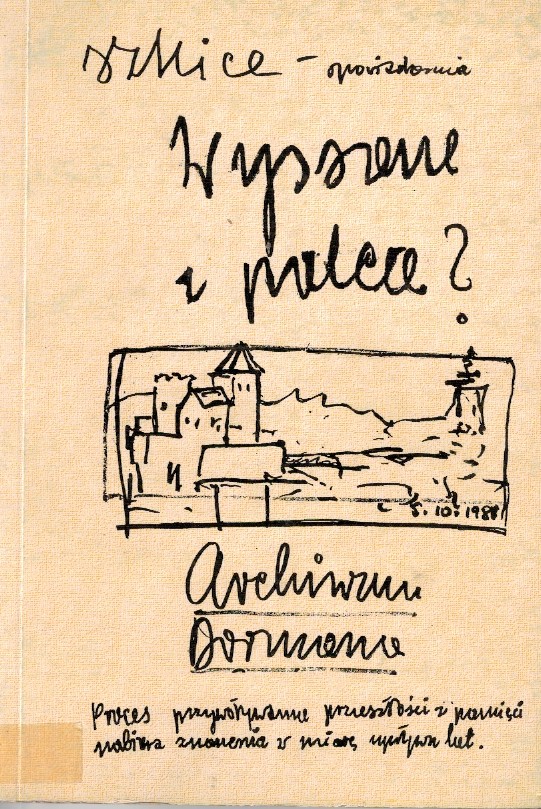 szkice – opowiadania
Wyssane
z palca?
5.10.1981
Archiwum
Dormana
Proces przywoływania przeszłości z pamięci
nabiera znaczenia w miarę upływu lat.